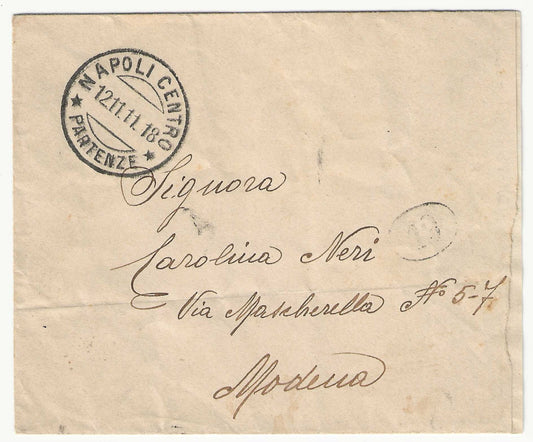 NAPOLI CENTRO
12.11.11.18
★ PARTENZE ★
Signora
Carolina Neri
Via Mascherella Nº 5-7
Modena